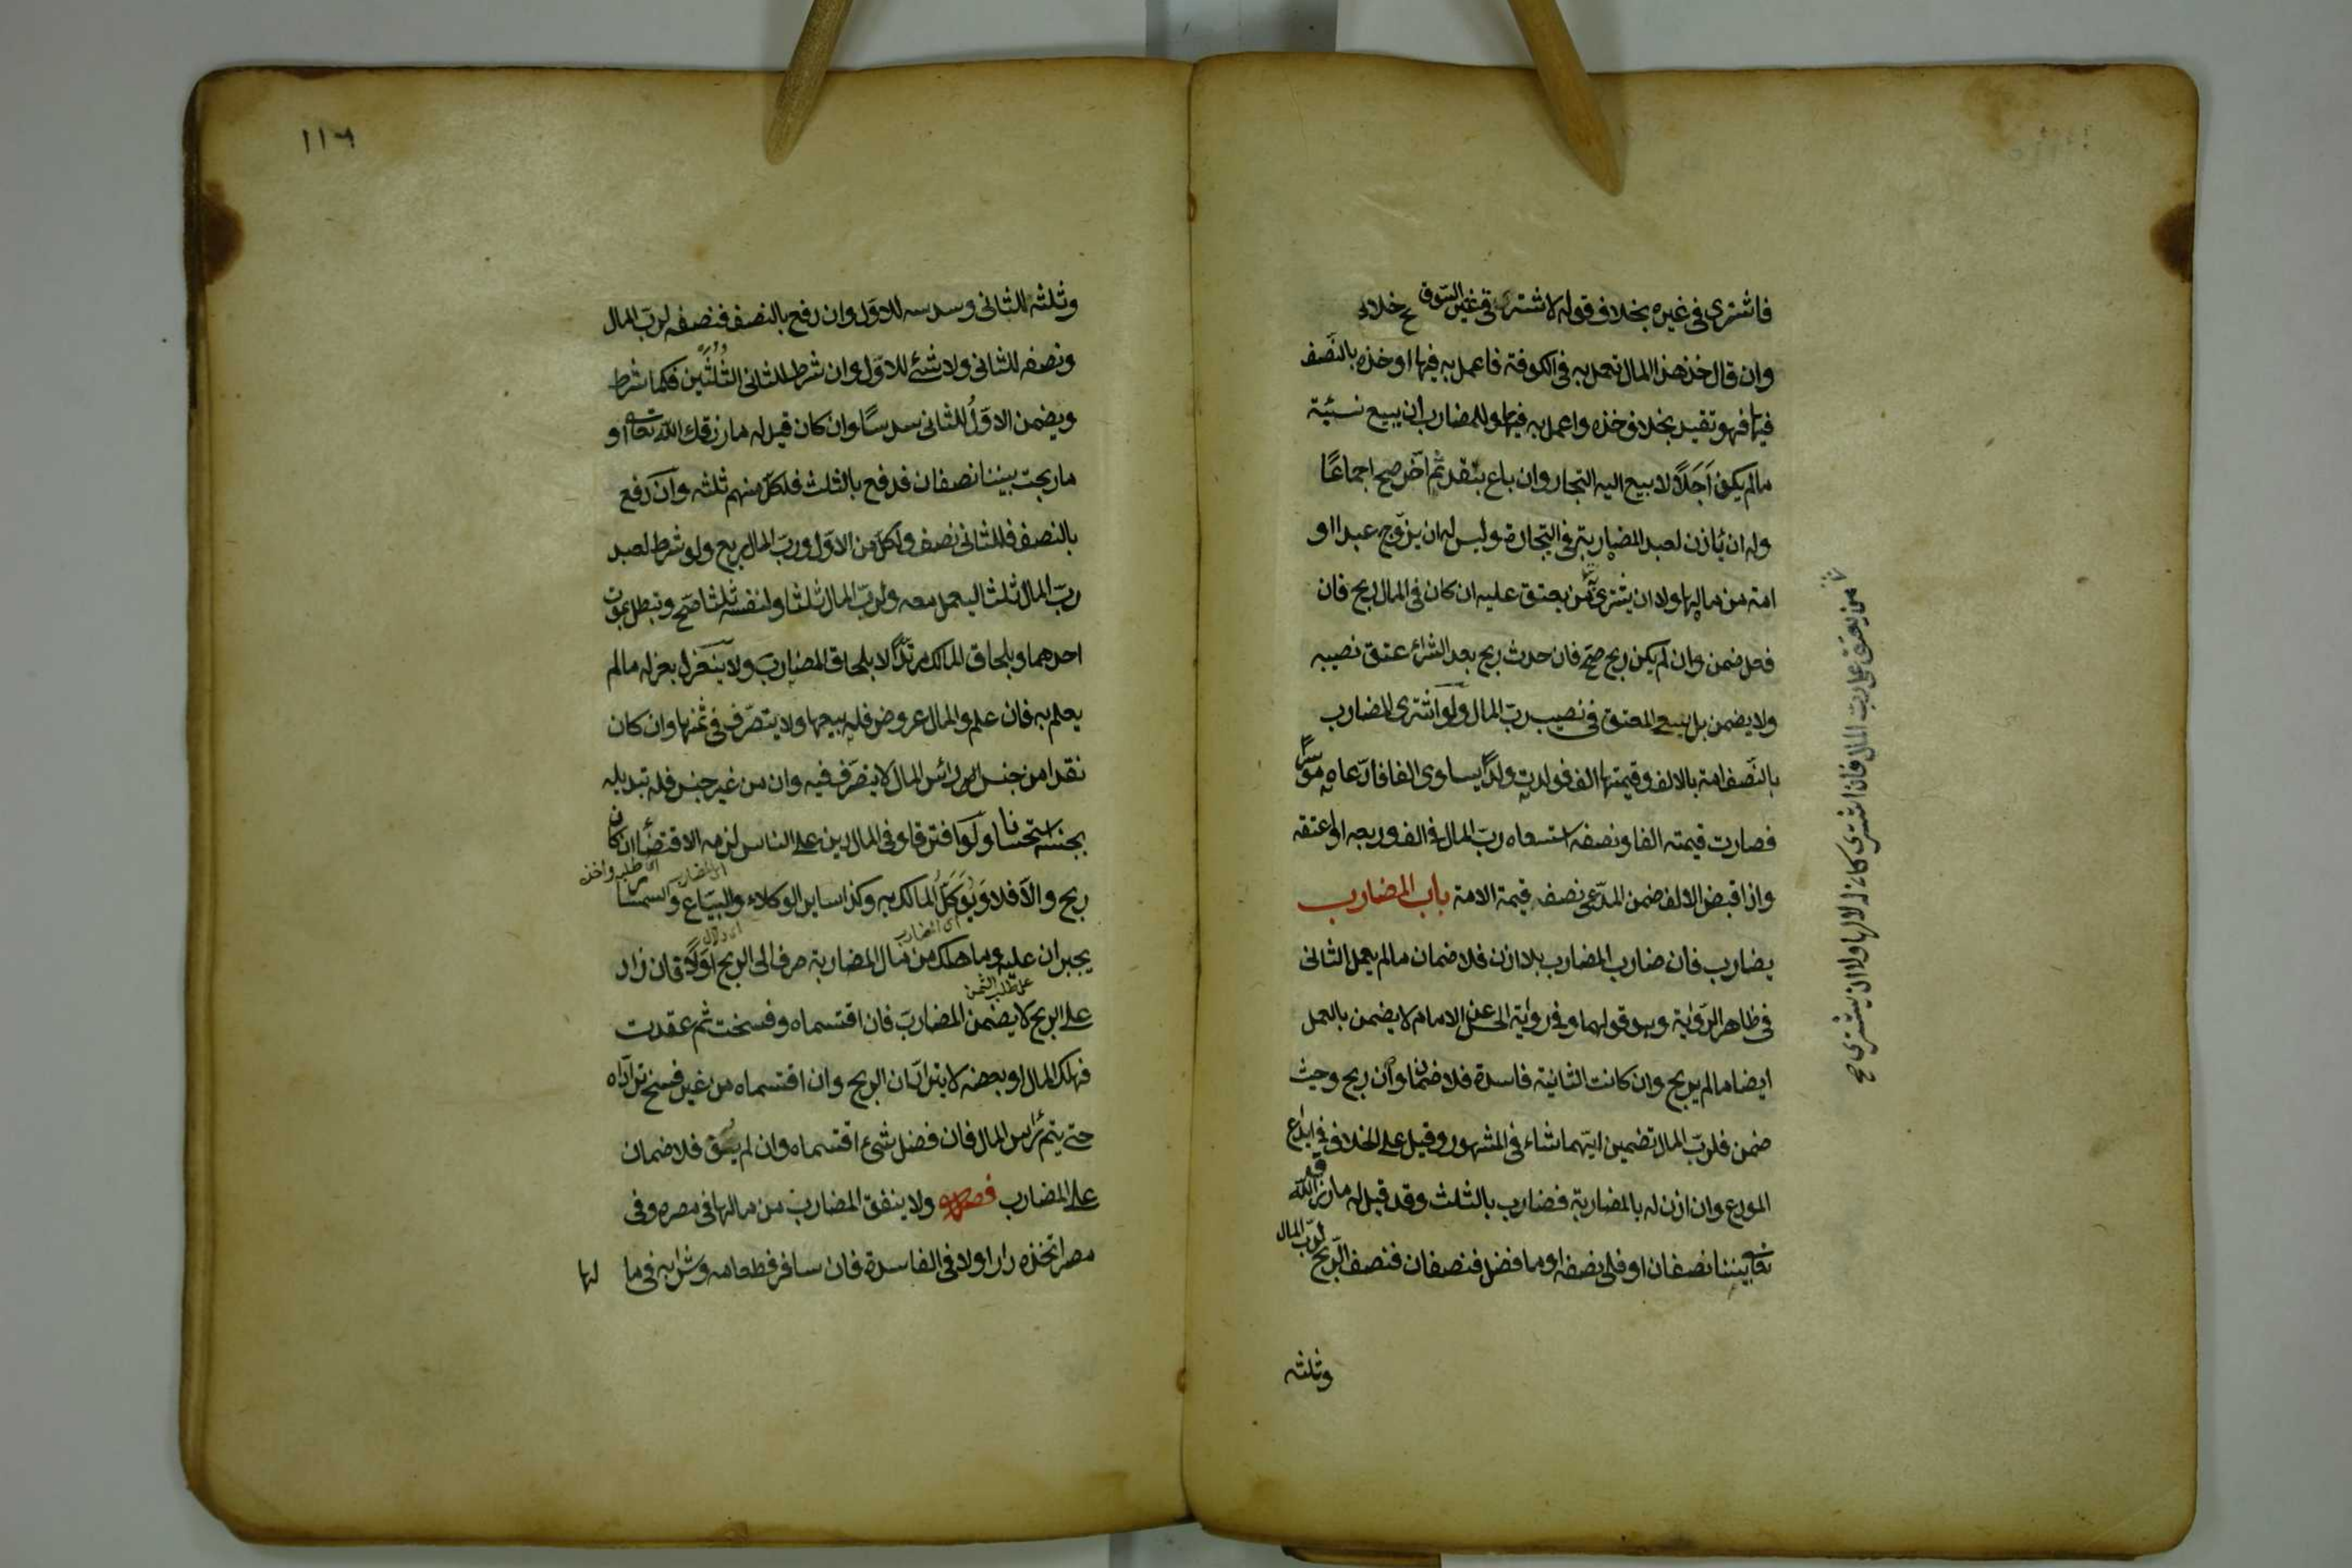 فاشترى في غيره بخلاف قوله لا تشتر في غير السوق
وان قال خذ هذا المال تعمل به في الكوفة فاعمل به فيها او خذه بالنصف
فيها فهو تقييد بخلاف خذه واعمل به فيها وللمضارب ان يبيع نسئية
مالم يكن اجلا لا يبيع اليه التجار وان باع بنقد ثم اخر صح اجماعا
وله ان يأذن لعبد المضاربة في التجارة وليس له ان يزوج عبدا او
امة من مالها ولا ان يشترى من يعتق عليه ان كان في المال ربح فان
فعل ضمن وان لم يكن ربح صح فان حدث ربح بعد الشراء عتق نصيبه
ولا يضمن بل يسعى المعتق في نصيب رب المال ولو اشترى المضارب
بالنصف امة بالالف وقيمتها الف فولدت ولدا يساوى الفا فادعاه موسرا
فصارت قيمته الفا ونصفه استسعاه رب المال في الف وربعه او اعتقه
واذا قبض الالف ضمن المدعى نصف قيمة الامة باب المضارب
يضارب فان ضارب المضارب بلا اذن فلا ضمان مالم يعمل الثانى
في ظاهر الرواية وهو قولهما وفي رواية الحسن عن الامام لا يضمن بالعمل
ايضا مالم يربح وان كانت الثانية فاسدة فلا ضمان وان ربح وحيث
ضمن فلرب المال تضمين ايهما شاء في المشهور وقيل على الخلاف في ايداع
المودع وان اذن له بالمضاربة فضارب بالثلث وقد قيل له مارزق الله
تعالى بيننا نصفان او فلى نصفه او ما فضل فنصفان فنصف الربح لرب المال
وثلثه
من يعتق على رب المال فان اشترى كان له لا لها ولا ان يشترى صح
١١٦
وثلثه للثانى وسدسه للاول وان دفع بالنصف فنصفه لرب المال
ونصفه للثانى ولا شئ للاول وان شرط للثانى الثلثين فكما شرط
ويضمن الاول للثانى سدسا وان كان قيل له ما رزقك الله تعالى او
ما ربحت بيننا نصفان فدفع بالثلث فلكل منهم ثلثه وان دفع
بالنصف فللثانى نصف ولكل من الاول ورب المال ربع ولو شرط لعبد
رب المال ثلثا ليعمل معه ولرب المال ثلثا ولنفسه ثلثا صح وتبطل بموت
احدهما وبلحاق المالك مرتدا لا بلحاق المضارب ولا ينعزل بعزله مالم
يعلم به فان علم والمال عروض فله بيعها ولا يتصرف في ثمنها وان كان
نقدا من جنس رأس المال لا يتصرف فيه وان من غير جنس فله تبديله
بجنسه استحسانا ولو افترقا وفي المال دين على الناس لزمه الاقتضاء ان كان
ربح والا فلا ويوكل المالك به وكذا ساير الوكلاء والبياع والسمسار
يجبران عليه وما هلك من مال المضاربة صرف الى الربح اولا فان زاد
على الربح لا يضمن المضارب فان اقتسماه وفسخت ثم عقدت
فهلك المال او بعضه لا يترادان الربح وان اقتسماه من غير فسخ ترادا
حتى يتم رأس المال فان فضل شئ اقتسماه وان لم يف فلا ضمان
على المضارب فصل ولا ينفق المضارب من مالها في مصره وفي
مصر اتخذه دارا ولا في الفاسدة فان سافر فطعامه وشرابه في ما لها